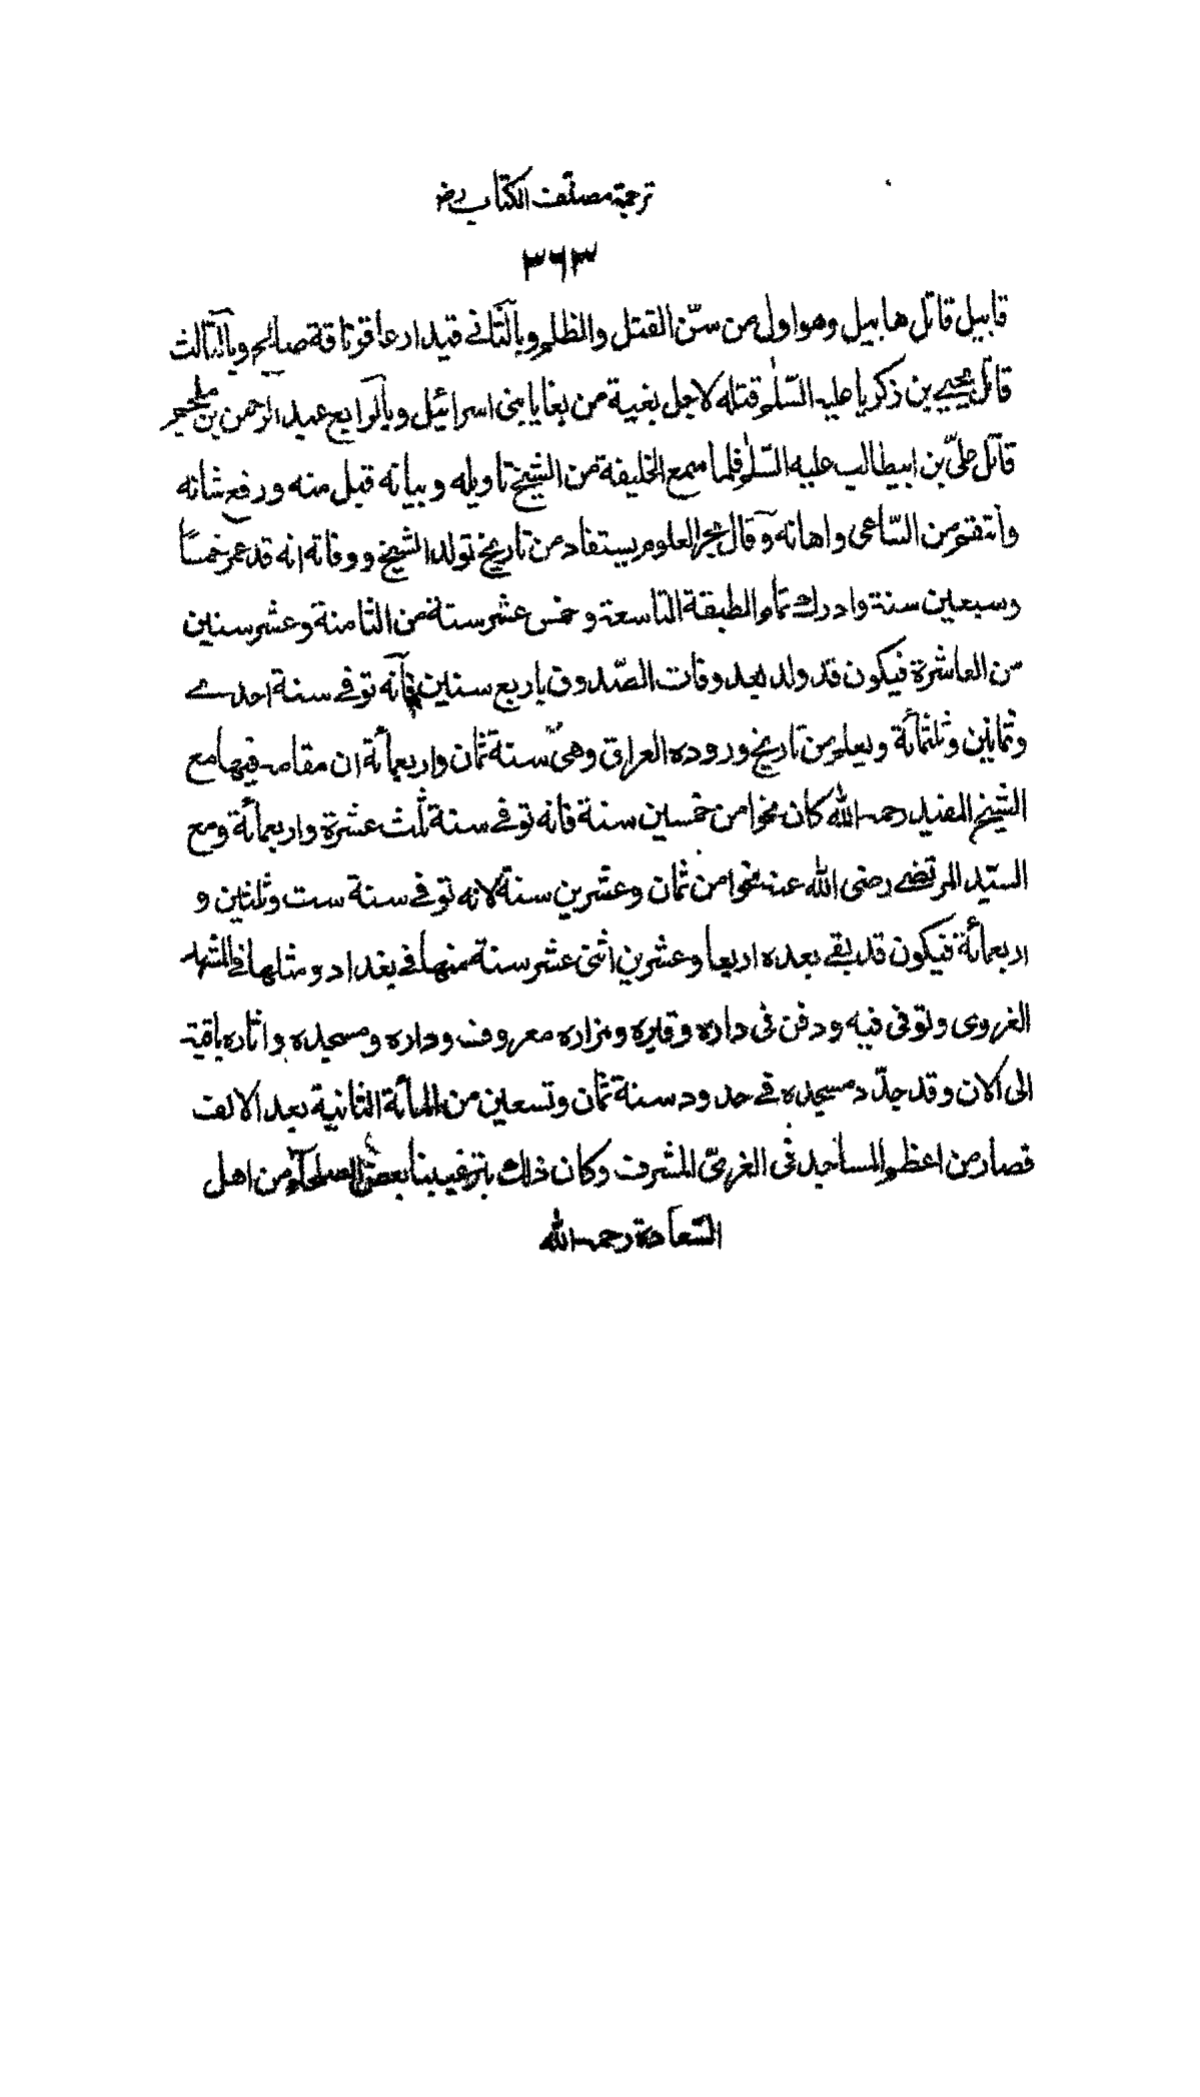 ترجمة مصنف الكتاب رض
٣٦٣
قابيل قاتل هابيل وهو اول من سنّ القتل والظلم وبالثّاني قيدار عاقر ناقة صالح وبالثالث
قاتل يحيى بن ذكريا عليه السّلم قتله لاجل بغية من بغايا بنى اسرائيل وبالرابع عبد الرحمن بن ملجم
قاتل علىّ بن ابيطالب عليه السّلم فلما سمع الخليفة من الشيخ تاويله وبيانه قبل منه ورفع شانه
وانتقم من السّاعى واهانه وقال بحر العلوم يستفاد من تاريخ تولد الشيخ ووفاته انه قد عمّر خمسًا
وسبعين سنة وادرك تمام الطبقة التاسعة وخمس عشر سنة من الثامنة وعشر سنين
من العاشرة فيكون قد ولد بعد وفات الصّدوق باربع سنين فانّه توفى سنة احدى
وثمانين وثلثمائة ويعلم من تاريخ وروده العراق وهى سنة ثمان واربعمائة ان مقامه فيها مع
الشيخ المفيد رحمه الله كان نحوا من خمسين سنة فانه توفى سنة ثلث عشرة واربعمائة ومع
السيّد المرتضى رضى الله عنه نحوا من ثمان وعشرين سنة لانه توفى سنة ست وثلثين و
اربعمائة فيكون قد بقى بعده اربعا وعشرين اثنى عشر سنة منها فى بغداد ومثلها فى المشهد
الغروى وتوفى فيه ودفن فى داره وقبره ومزاره معروف وداره ومسجده واثاره باقية
الى الان وقد جدّد مسجده فى حدود سنة ثمان وتسعين من المائة الثانية بعد الالف
فصار من اعظم المساجد فى الغرىّ المشرف وكان ذلك بترغيبنا بعض الصلحاء من اهل
السّعادة رحمه الله